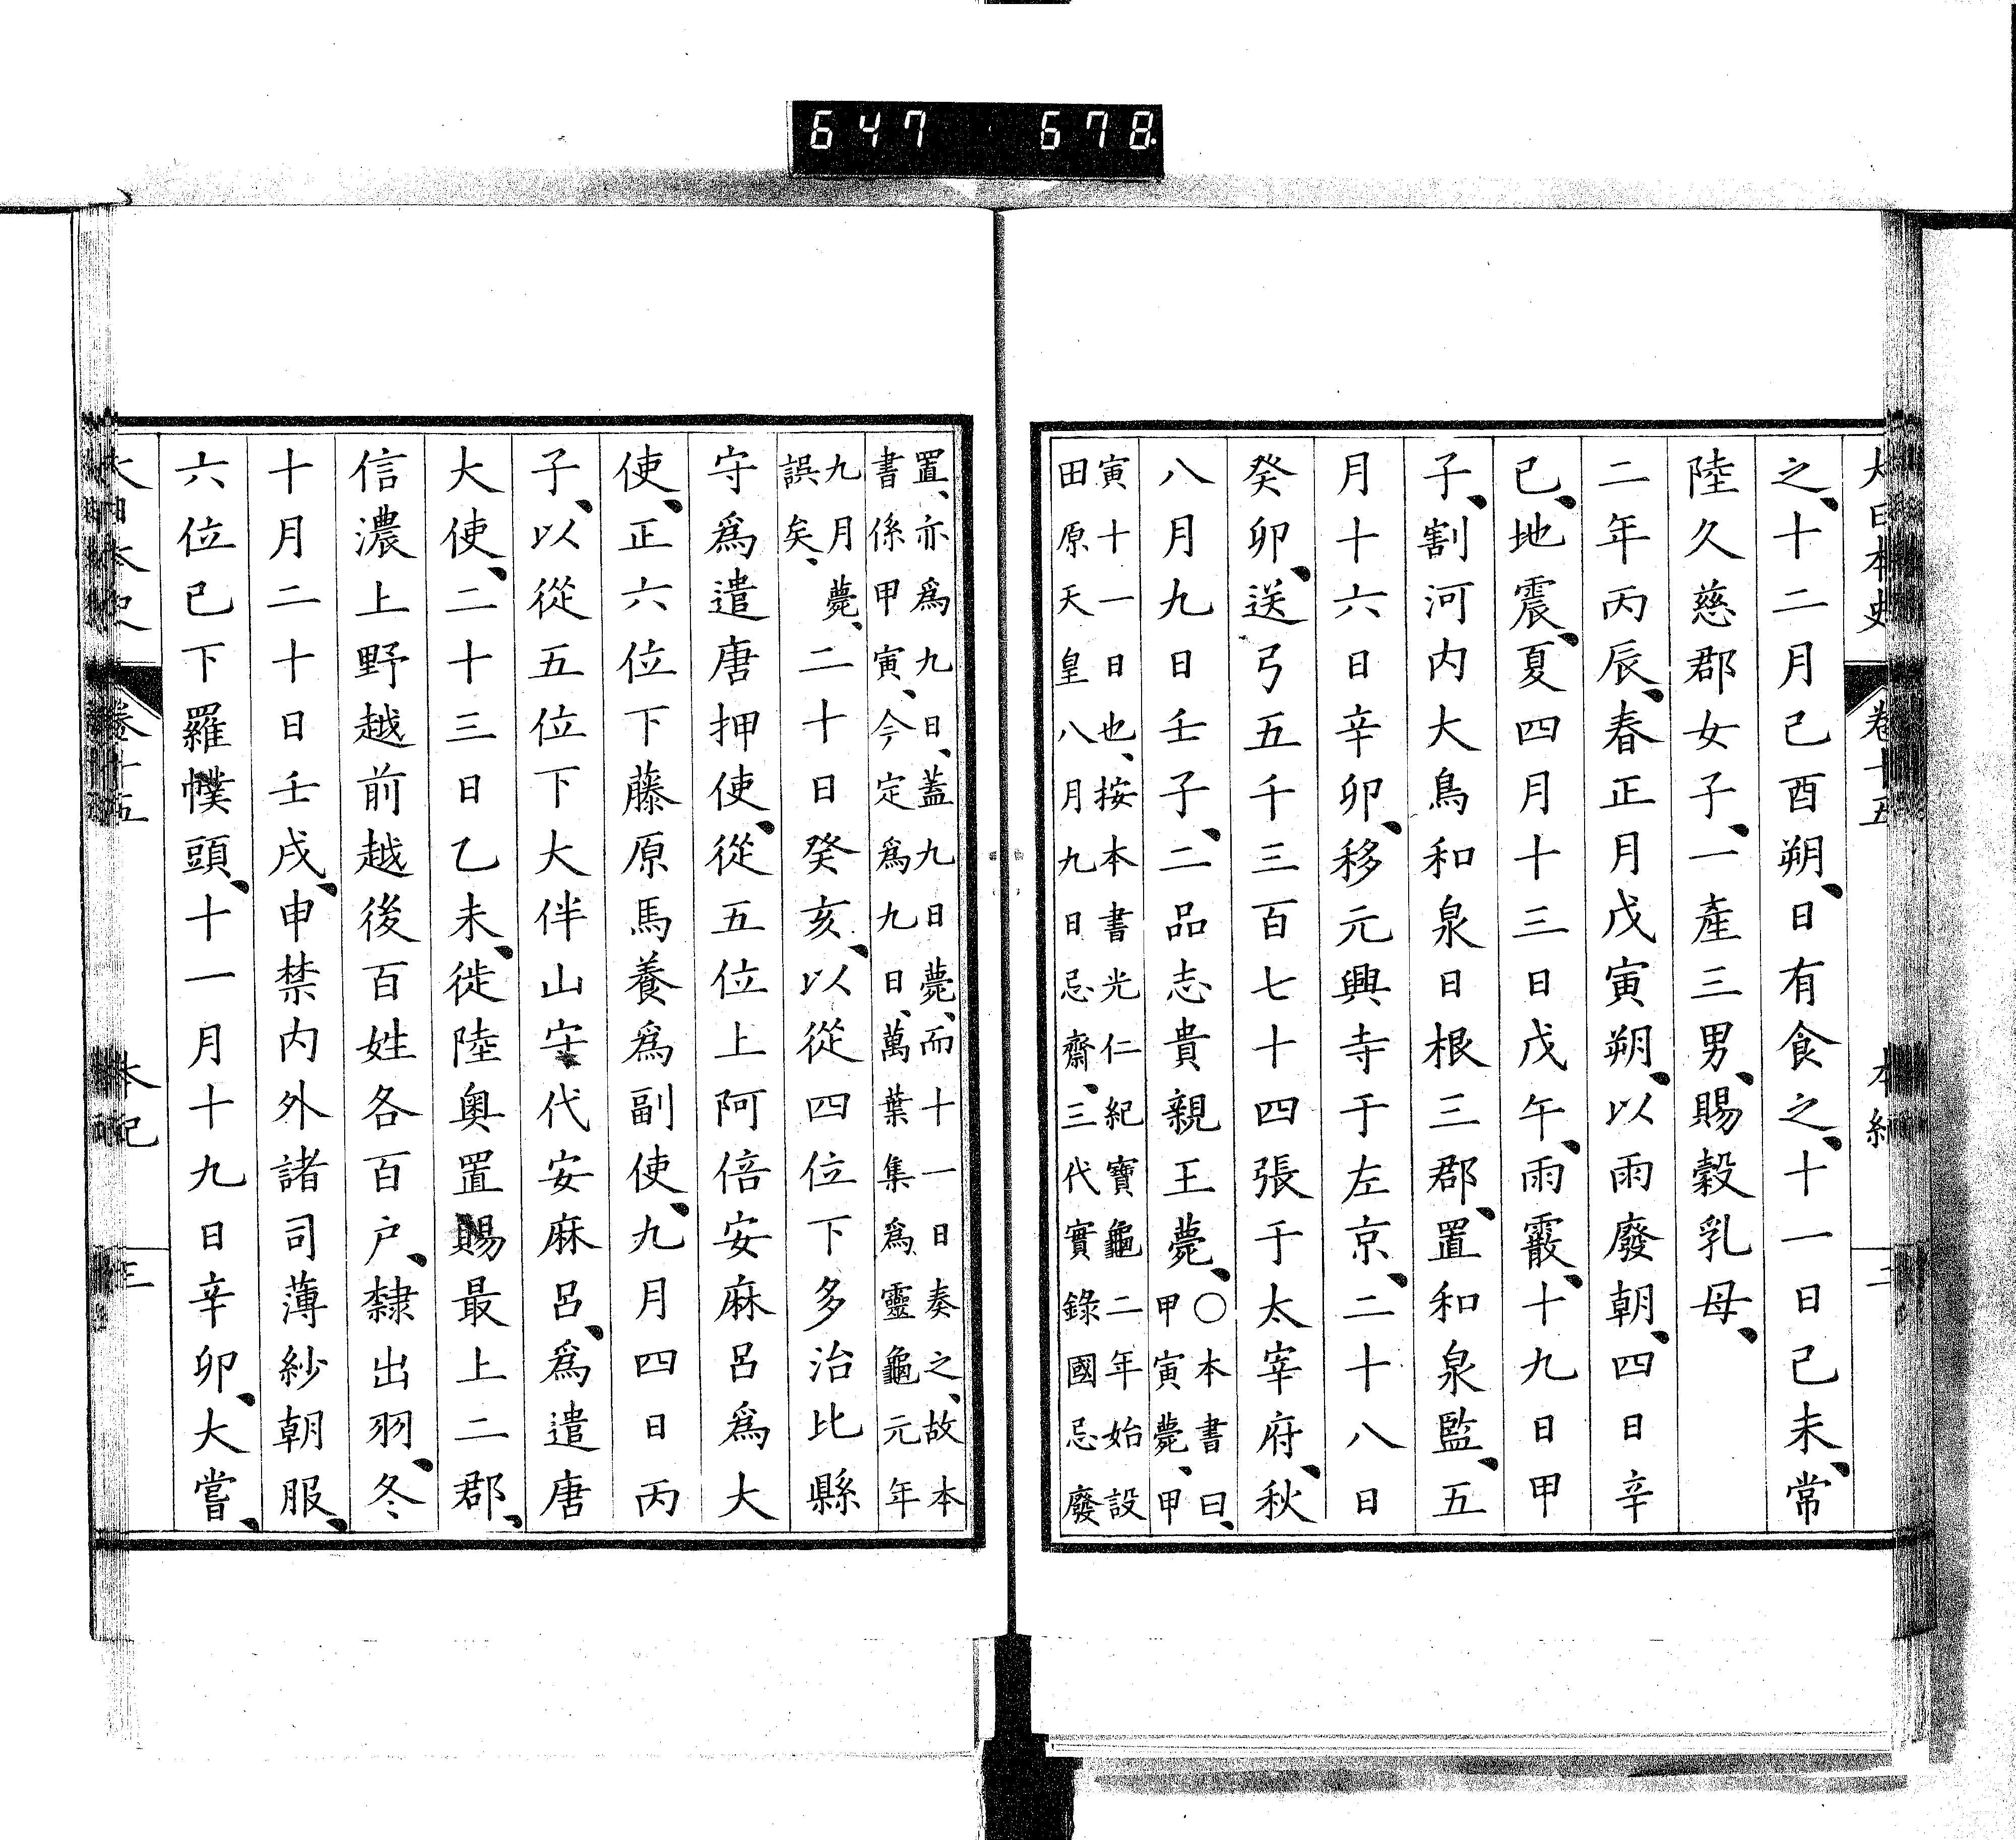 647 678
大日本史 卷十五 本紀 二
之、十二月己酉朔、日有食之、十一日己未、常
陸久慈郡女子、一產三男、賜穀乳母、
二年丙辰、春正月戊寅朔、以雨廢朝、四日辛
巳、地震、夏四月十三日戊午、雨霰、十九日甲
子、割河內大鳥和泉日根三郡、置和泉監、五
月十六日辛卯、移元興寺于左京、二十八日
癸卯、送弓五千三百七十四張于太宰府、秋
八月九日壬子、二品志貴親王薨、
〇本書曰、
甲寅薨、甲
寅十一日也、按本書光仁紀寶龜二年始設
田原天皇八月九日忌齋、三代實錄國忌廢
置、亦爲九日、蓋九日薨、而十一日奏之、故本
書係甲寅、今定爲九日、萬葉集爲靈龜元年
九月薨、
誤矣、
二十日癸亥、以從四位下多治比縣
守爲遣唐押使、從五位上阿倍安麻呂爲大
使、正六位下藤原馬養爲副使、九月四日丙
子、以從五位下大伴山守代安麻呂、爲遣唐
大使、二十三日乙未、徙陸奧置賜最上二郡、
信濃上野越前越後百姓各百戶、隸出羽、冬
十月二十日壬戌、申禁內外諸司薄紗朝服、
六位已下羅幞頭、十一月十九日辛卯、大嘗、
大日本史 卷十五 本紀 三